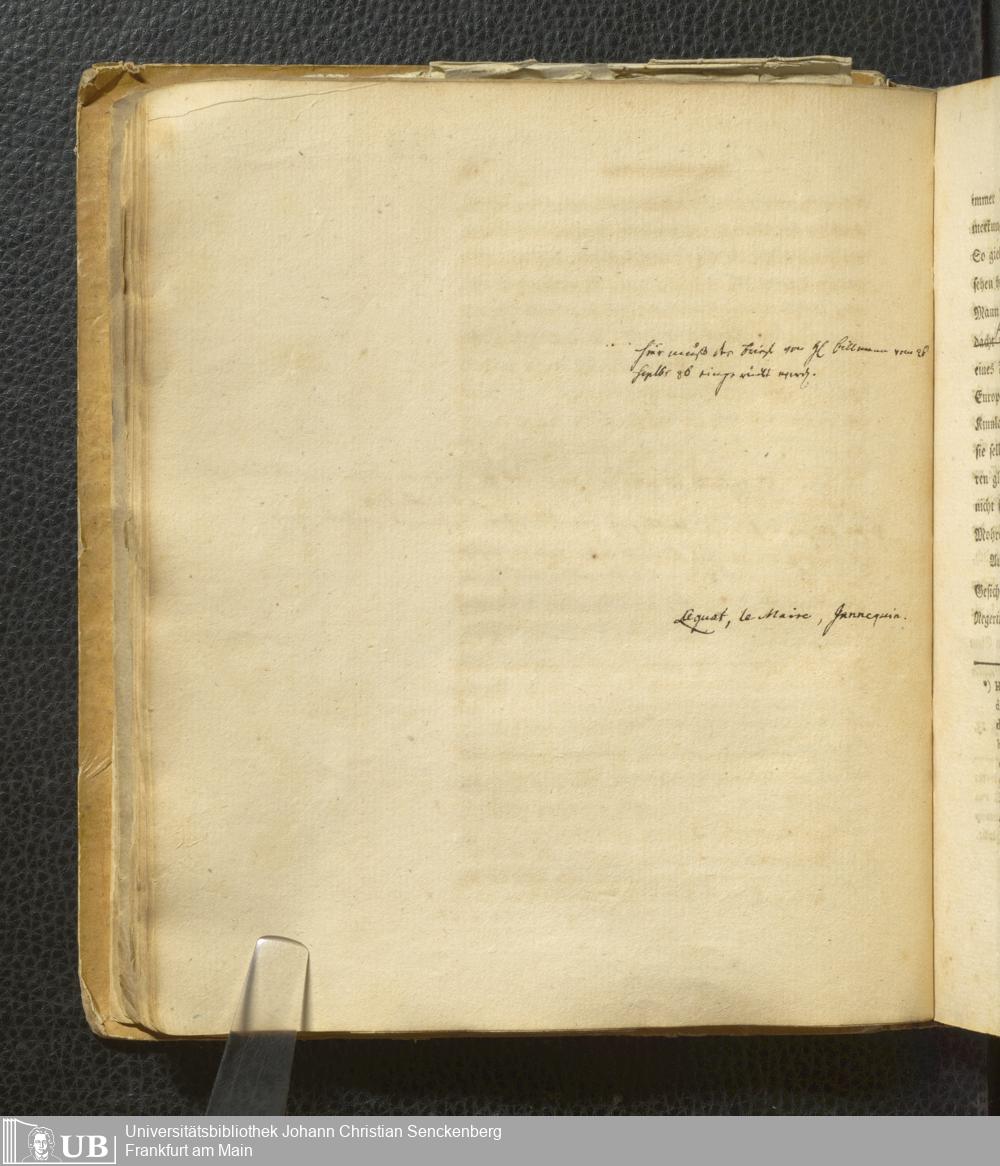 hier muß der Brief von H. Billmann vom 28
Septbr 86 eingerückt werd.
Lequat, le Maire, Jannequin.
immer
merkun
So gie
schen
Mann
dacht
eines
Europ
sie sell
ren gl
nicht
Mohr
Gesich
Negeri
*) H
UB
Universitätsbibliothek Johann Christian Senckenberg
Frankfurt am Main